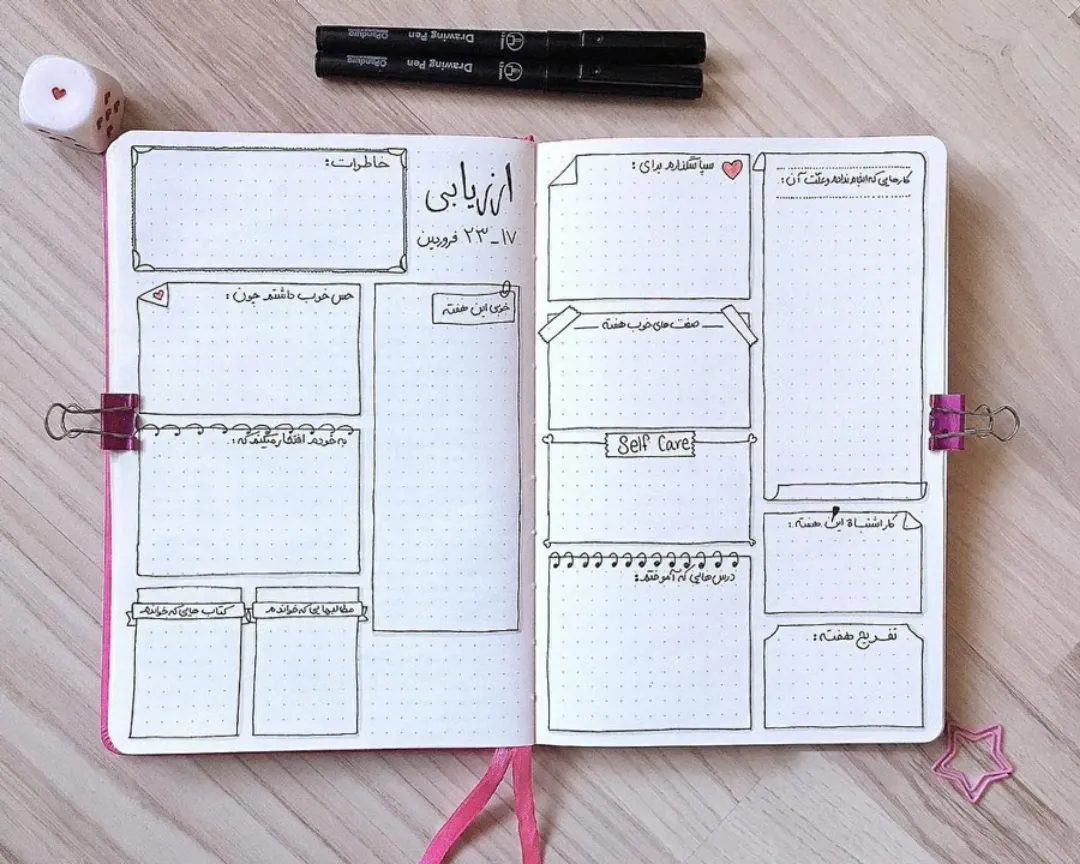 Drawing Pen
Drawing Pen
ارزیابی
۱۷_۲۳ فروردین
خاطرات:
حس خوب داشتم چون:
خوبی این هفته
به خودم افتخار میکنم که:
مطالبهایی که خواندم
کتاب هایی که خواندم
سپاسگذارم برای:
کارهایی که انجام ندادم و علت آن:
صفت های خوب هفته
Self Care
کار اشتباه این هفته:
درس هایی که آموختم:
تفریح هفته: